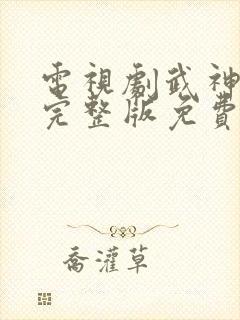 電視劇武神
完整版免費
喬灌草